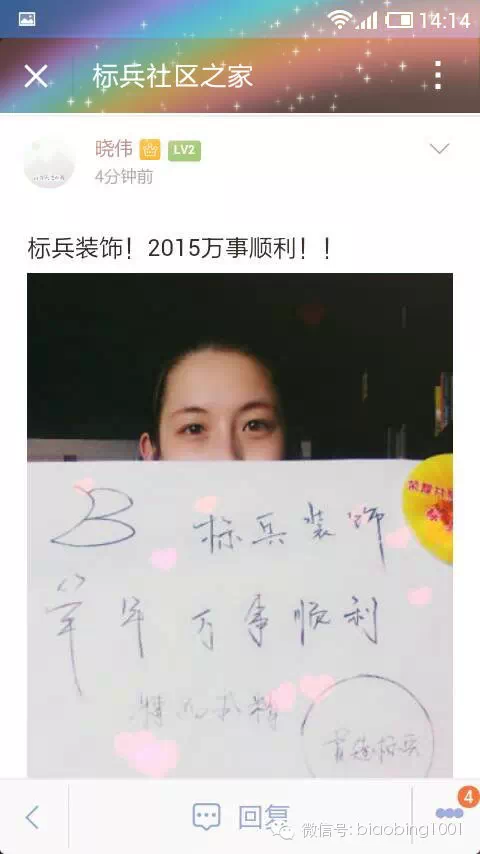 14:14
标兵社区之家
晓伟 LV2
4分钟前
标兵装饰！2015万事顺利！！
B 标兵装饰
羊年 万事顺利
标兵
回复
4
微信号: biaobing1001